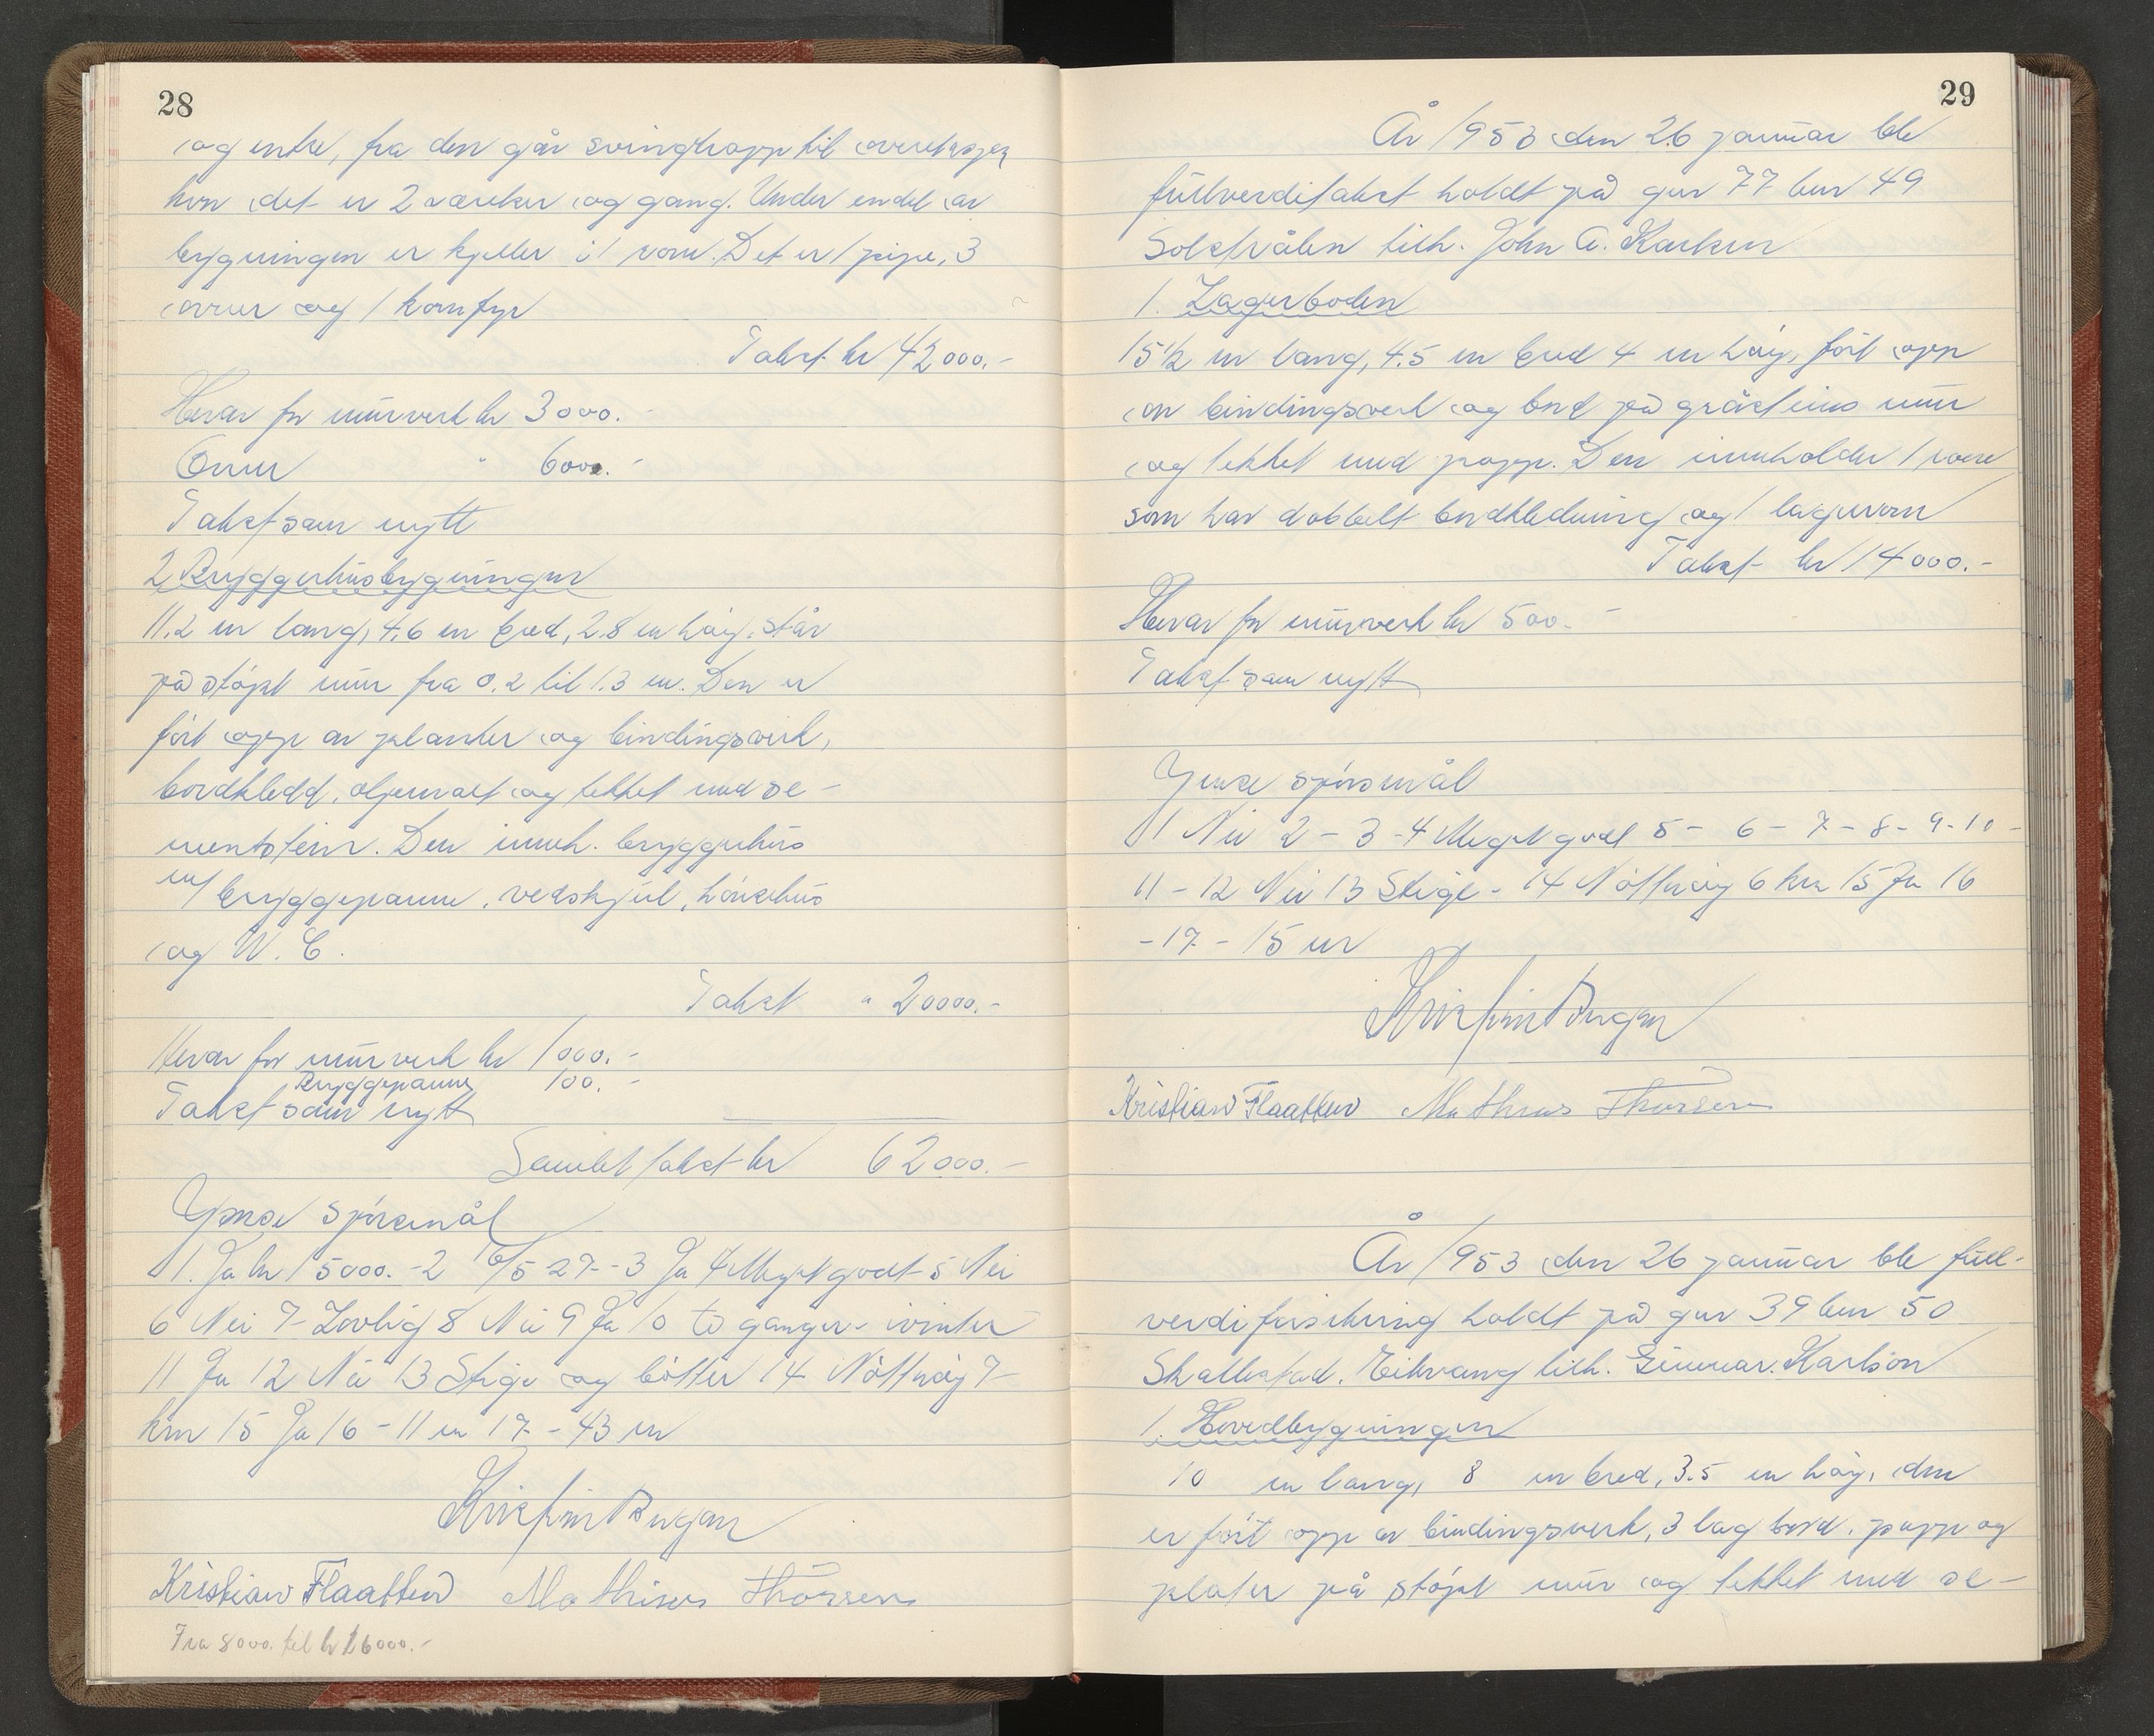 28
og entre, fra den går svingtrapp til overetasjen
hvor det er 2 værelser og gang. Under endel av
bygningen er kjeller i 1 rom. Det er 1 pipe, 3
ovner og 1 komfyr
Takst kr 42000.-
Herav for mürverk kr 3000.-
Ovner " 600.-
Takst som nytt
2 Bryggerhusbygningen
11.2 m lang, 4,6 m bred, 2.8 m høy, står
på støpt mür fra 0.2 til 1.3 m. Den er
ført opp av planker og bindingsverk,
bordkledd, oljemalt og tekket med se-
mentstein. Den inneh. bryggerhüs
m/ bryggepanne, vedskjul, hönsehüs
og W.C.
Takst " 20000.-
Herav for mürverk kr 1000.-
Bryggepanne 100.-
Takst som nytt
Samlet takst kr 62000.-
Ymse spørsmål
1. Ja kr 15000.-2 16/5-27-3 Ja 4 Meget godt 5 Nei
6 Nei 7 Lovlig 8 Nei 9 Ja 10 to ganger i vinter
11 Ja 12 Nei 13 Stige og bøtter 14 Nøtterøy 7
km 15 Ja 16 - 11 m 17 - 43 m
Kristian Flaatten Mathias Thorsen
Fra 8000. til kr 16000.-
29
År 1953 den 26 januar ble
füllverditakst holdt på gnr 77 bnr 49
Solstrålen tilh. John A. Karlsen
1. Lagerboden
15½ m lang, 4.5 m bred 4 m høy, ført opp
av bindingsverk og bord på gråsteins mür
og tekket med papp. Den inneholder 1 værelse
som har dobbelt bordkledning og 1 lagerrom
Takst kr 14000.-
Herav for mürverk kr 500.-
Takst som nytt
Ymse spørsmål
1 Nei 2 - 3 - 4 Meget godt 5 - 6 - 7 - 8 - 9 - 10 -
11 - 12 Nei 13 Stige - 14 Nøtterøy 6 km 15 Ja 16
- 17 - 15 m
Kristian Flaatten Mathias Thorsen
År 1953 den 26 januar ble füll-
verdiforsikring holdt på gnr 39 bnr 50
Skallestad, Eikvang tilh. Gunnar Karlson
1. Hovedbygningen
10 m lang, 8 m bred, 3.5 m høy, den
er ført opp av bindingsverk, 3 lag bord, papp og
plater på støpt mür og tekket med se-